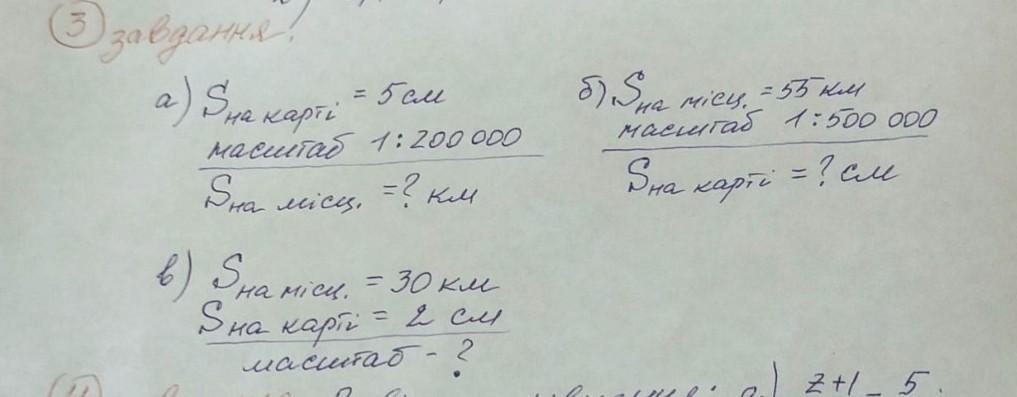 3 завдання!
а) Sна карті = 5 см
масштаб 1:200 000
Sна місц. = ? км
б) Sна місц. = 55 км
масштаб 1:500 000
Sна карті = ? см
в) Sна місц. = 30 км
Sна карті = 2 см
масштаб - ?
а) z+1 = 5